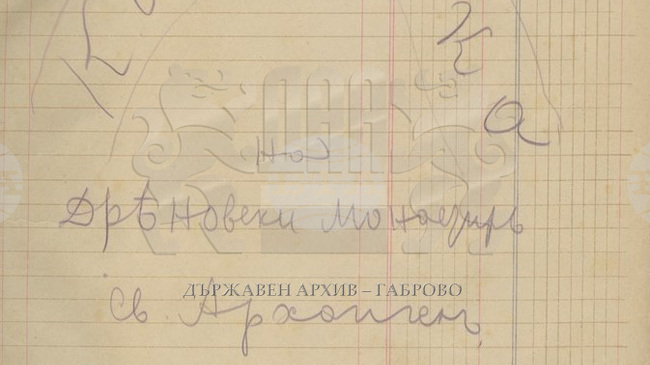 К
а
на
Дрѣновски монастирь
ДЪРЖАВЕН АРХИВ – ГАБРОВО
Св. Архангелъ